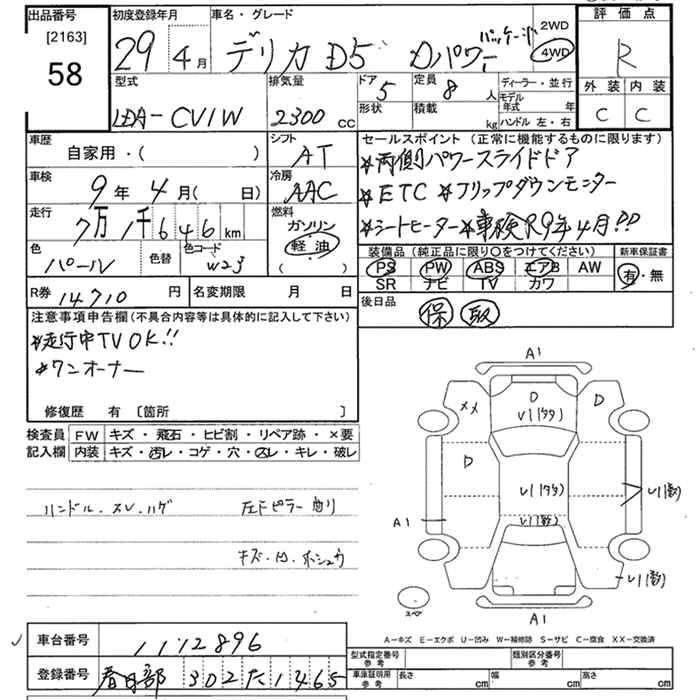 出品番号
[2163]
58
初度登録年月
29 4月
車名・グレード
デリカD5 Dパワーパッケージ
2WD
4WD
評価点
R
外装 内装
C C
型式
LDA-CV1W
排気量
2300 cc
ドア 5
形状
定員 8 人
積載 kg
ディーラー・並行
モデル年式 年
ハンドル 左・右
車歴
自家用・( )
シフト
AT
車検
9年4月( 日)
冷房
AAC
走行
7万1千646km
燃料
ガソリン
軽油
( )
色
パール
色替
色コード
W23
R券 14710円
名変期限 月 日
セールスポイント (正常に機能するものに限ります)
*両側パワースライドドア
*ETC *フリップダウンモニター
*シートヒーター*車検R9年4月!!
装備品 (純正品に限り○をつけてください)
PS PW ABS エアB AW
SR ナビ TV カワ
新車保証書
有・無
後日品
保 取
注意事項申告欄(不具合内容等は具体的に記入して下さい)
*走行中TVOK!!
*ワンオーナー
修復歴 有 [箇所 ]
検査員記入欄
FW キズ・飛石・ヒビ割・リペア跡・×要
内装 キズ・汚レ・コゲ・穴・スレ・キレ・破レ
ハンドル.スレ.ハゲ 左Fピラー曲り
キズ.凹.ホシュウ
A1
XX
D
U1(タタ)
D
D
U1(タタ)
U1(多)
U1(多)
A1
U1(多)
スペア
A1
A-キズ E-エクボ U-凹み W-補修跡 S-サビ C-腐食 XX-交換済
車台番号 1112896
登録番号 春日部 302 た 1465
型式指定番号
参考
類別区分番号
参考
車庫証明用
参考
長さ cm
幅 cm
高さ cm